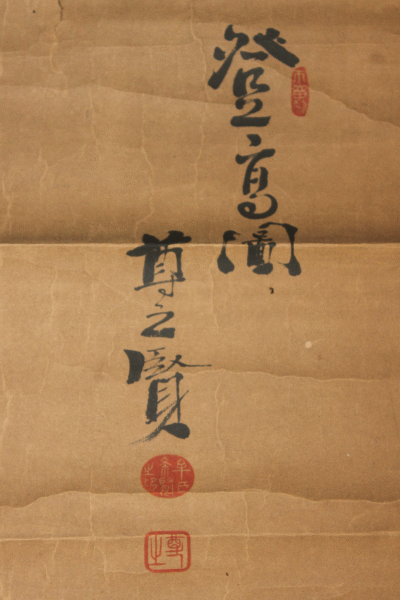 登高圖
尊之賢